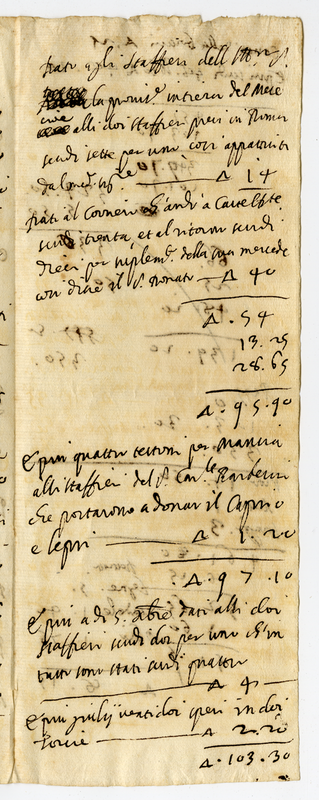 dati agli staffieri dell Ill.mo S.r
la provis.e intiera del Mese
cioe alli doi staffieri presi in Roma
scudi sette per uno così appuntati
dal med.mo Δ 14
dati al Corriero ch'andò a
scudi trenta, et al ritorno scudi
dieci per suplem.to della sua mercede
così disse il S.r Donato Δ 40
Δ. 54
13. 25
28. 65
Δ. 95. 90
E più quattro testoni per mancia
alli staffieri del S.r Car.le Barberini
che portarono a donar il Caprio
e lepri Δ 1. 20
Δ. 97. 10
E più a di 5. Xbre dati alli doi
staffieri scudi doi per uno ch'in
tutto sono stati scudi quattro
Δ 4
E più giulij venti doi spesi in doi
Δ 2. 20
Δ. 103. 30